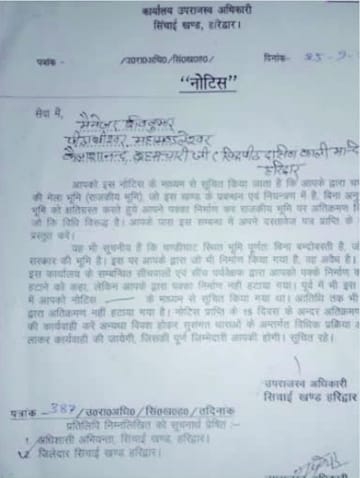 कार्यालय उपराजस्व अधिकारी
सिंचाई खण्ड, हरिद्वार।
पत्रांक - /उ०रा०अधि०/सिं०ख०ह०/ दिनांक- 25-9-
“नोटिस”
सेवा में,
मैनेजर
पीठाधीश्वर, महामण्डलेश्वर
कैलाशानन्द ब्रहमचारी जी (सिद्धपीठ दक्षिण काली मन्दि
हरिद्वार
आपको इस नोटिस के माध्यम से सूचित किया जाता है कि आपके द्वारा च
की मेला भूमि (राजकीय भूमि), जो इस खण्ड के प्रबन्धन एवं नियन्त्रण में है, बिना अनु
भूमि को क्षतिग्रस्त करते हुये आपने पक्का निर्माण कर राजकीय भूमि पर अतिक्रमण वि
जो कि विधि विरूद्ध है। आपके पास इस सम्बन्ध में अपने दस्तावेज पत्र प्राप्ति के
प्रस्तुत करें।
यह भी सूचनीय है कि चण्डीघाट स्थित भूमि पूर्णतः बिना बन्दोबस्ती है, जो
सरकार की भूमि है। इस पर आपके द्वारा जो भी निर्माण किया गया है, वह अवैध है।
इस कार्यालय के सम्बन्धित सींचपालों एवं सींच पर्यवेक्षक द्वारा आपके पक्के निर्माण
हटाने को कहा, लेकिन आपके द्वारा पक्का निर्माण नहीं हटाया गया। पूर्व में भी इस
में आपको नोटिस के माध्यम से सूचित किया गया था। आतिथि तक भी
द्वारा अतिक्रमण नहीं हटाया गया है। नोटिस प्राप्ति के 15 दिवस के अन्दर अतिक्रमण
की कार्यवाही करें अन्यथा विवश होकर सुसंगत धाराओं के अन्तर्गत विधिक प्रक्रिया अ
लाकर कार्यवाही की जायेगी, जिसकी पूर्ण जिम्मेदारी आपकी होगी। सूचित रहे।
उपराजस्व अधिकारी
सिंचाई खण्ड हरिद्वार
पत्रांक - 387 /उ०रा०अधि०/सिं०ख०ह०/तददिनांक
प्रतिलिपि निम्नलिखित को सूचनार्थ प्रेषित :-
1. अधिशासी अभियन्ता, सिंचाई खण्ड, हरिद्वार।
2. जिलेदार सिंचाई खण्ड, हरिद्वार।